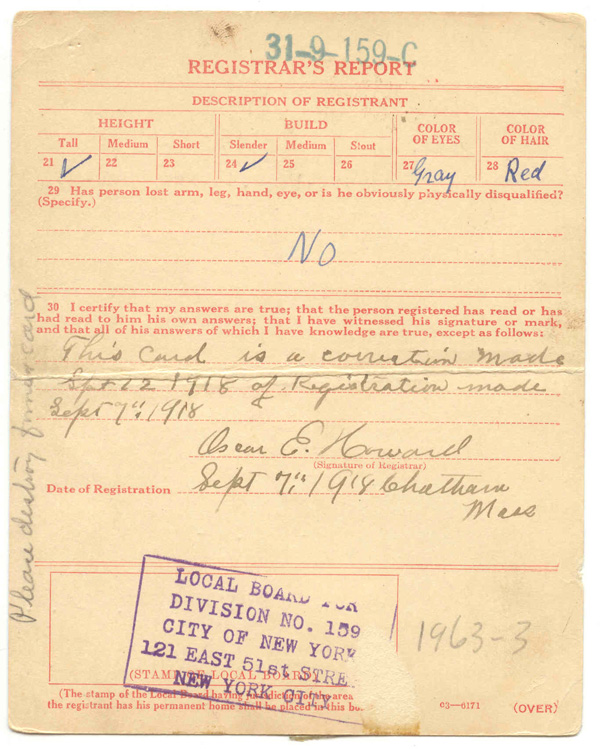 31-9-159-C
REGISTRAR'S REPORT
DESCRIPTION OF REGISTRANT
HEIGHT BUILD COLOR OF EYES COLOR OF HAIR
Tall Medium Short Slender Medium Stout
21 ✓ 22 23 24 ✓ 25 26 27 Gray 28 Red
29 Has person lost arm, leg, hand, eye, or is he obviously physically disqualified?
(Specify.)
No
30 I certify that my answers are true; that the person registered has read or has
had read to him his own answers; that I have witnessed his signature or mark,
and that all of his answers of which I have knowledge are true, except as follows:
This card is a correction made
Sept 12 1918 of Registration made
Sept 7" 1918
Oscar E. Howard
(Signature of Registrar)
Date of Registration Sept 7" 1918 Chatham
Mass
Please destroy former card
LOCAL BOARD FOR
DIVISION NO. 159
CITY OF NEW YORK
121 EAST 51st STRE
NEW YORK CITY
1963-3
(STAMP OF LOCAL BOARD)
(The stamp of the Local Board having jurisdiction of the area
the registrant has his permanent home shall be placed in this bo
03—6171 (OVER)